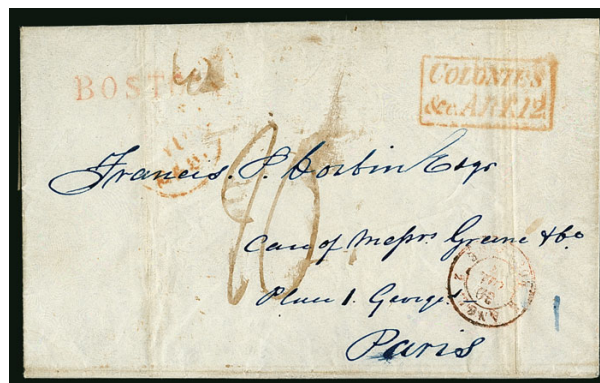 BOSTON
COLONIES
&c. ART. 12
Francis. P. Corbin Esqr
Care of Messrs. Greene & Co
Place St. George
Paris